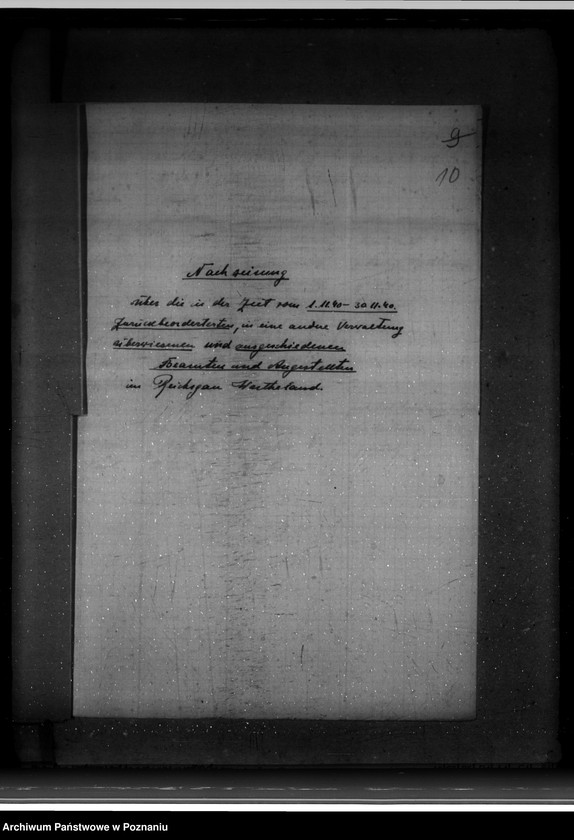 9
10
Nachweisung
über die in der Zeit vom 1.11.40 - 30.11.40.
Zurückbeorderten, in eine andre Verwaltung
überwiesenen und ausgeschiedenen
Beamten und Angestellten
im Reichsgau Wartheland.
Archiwum Państwowe w Poznaniu